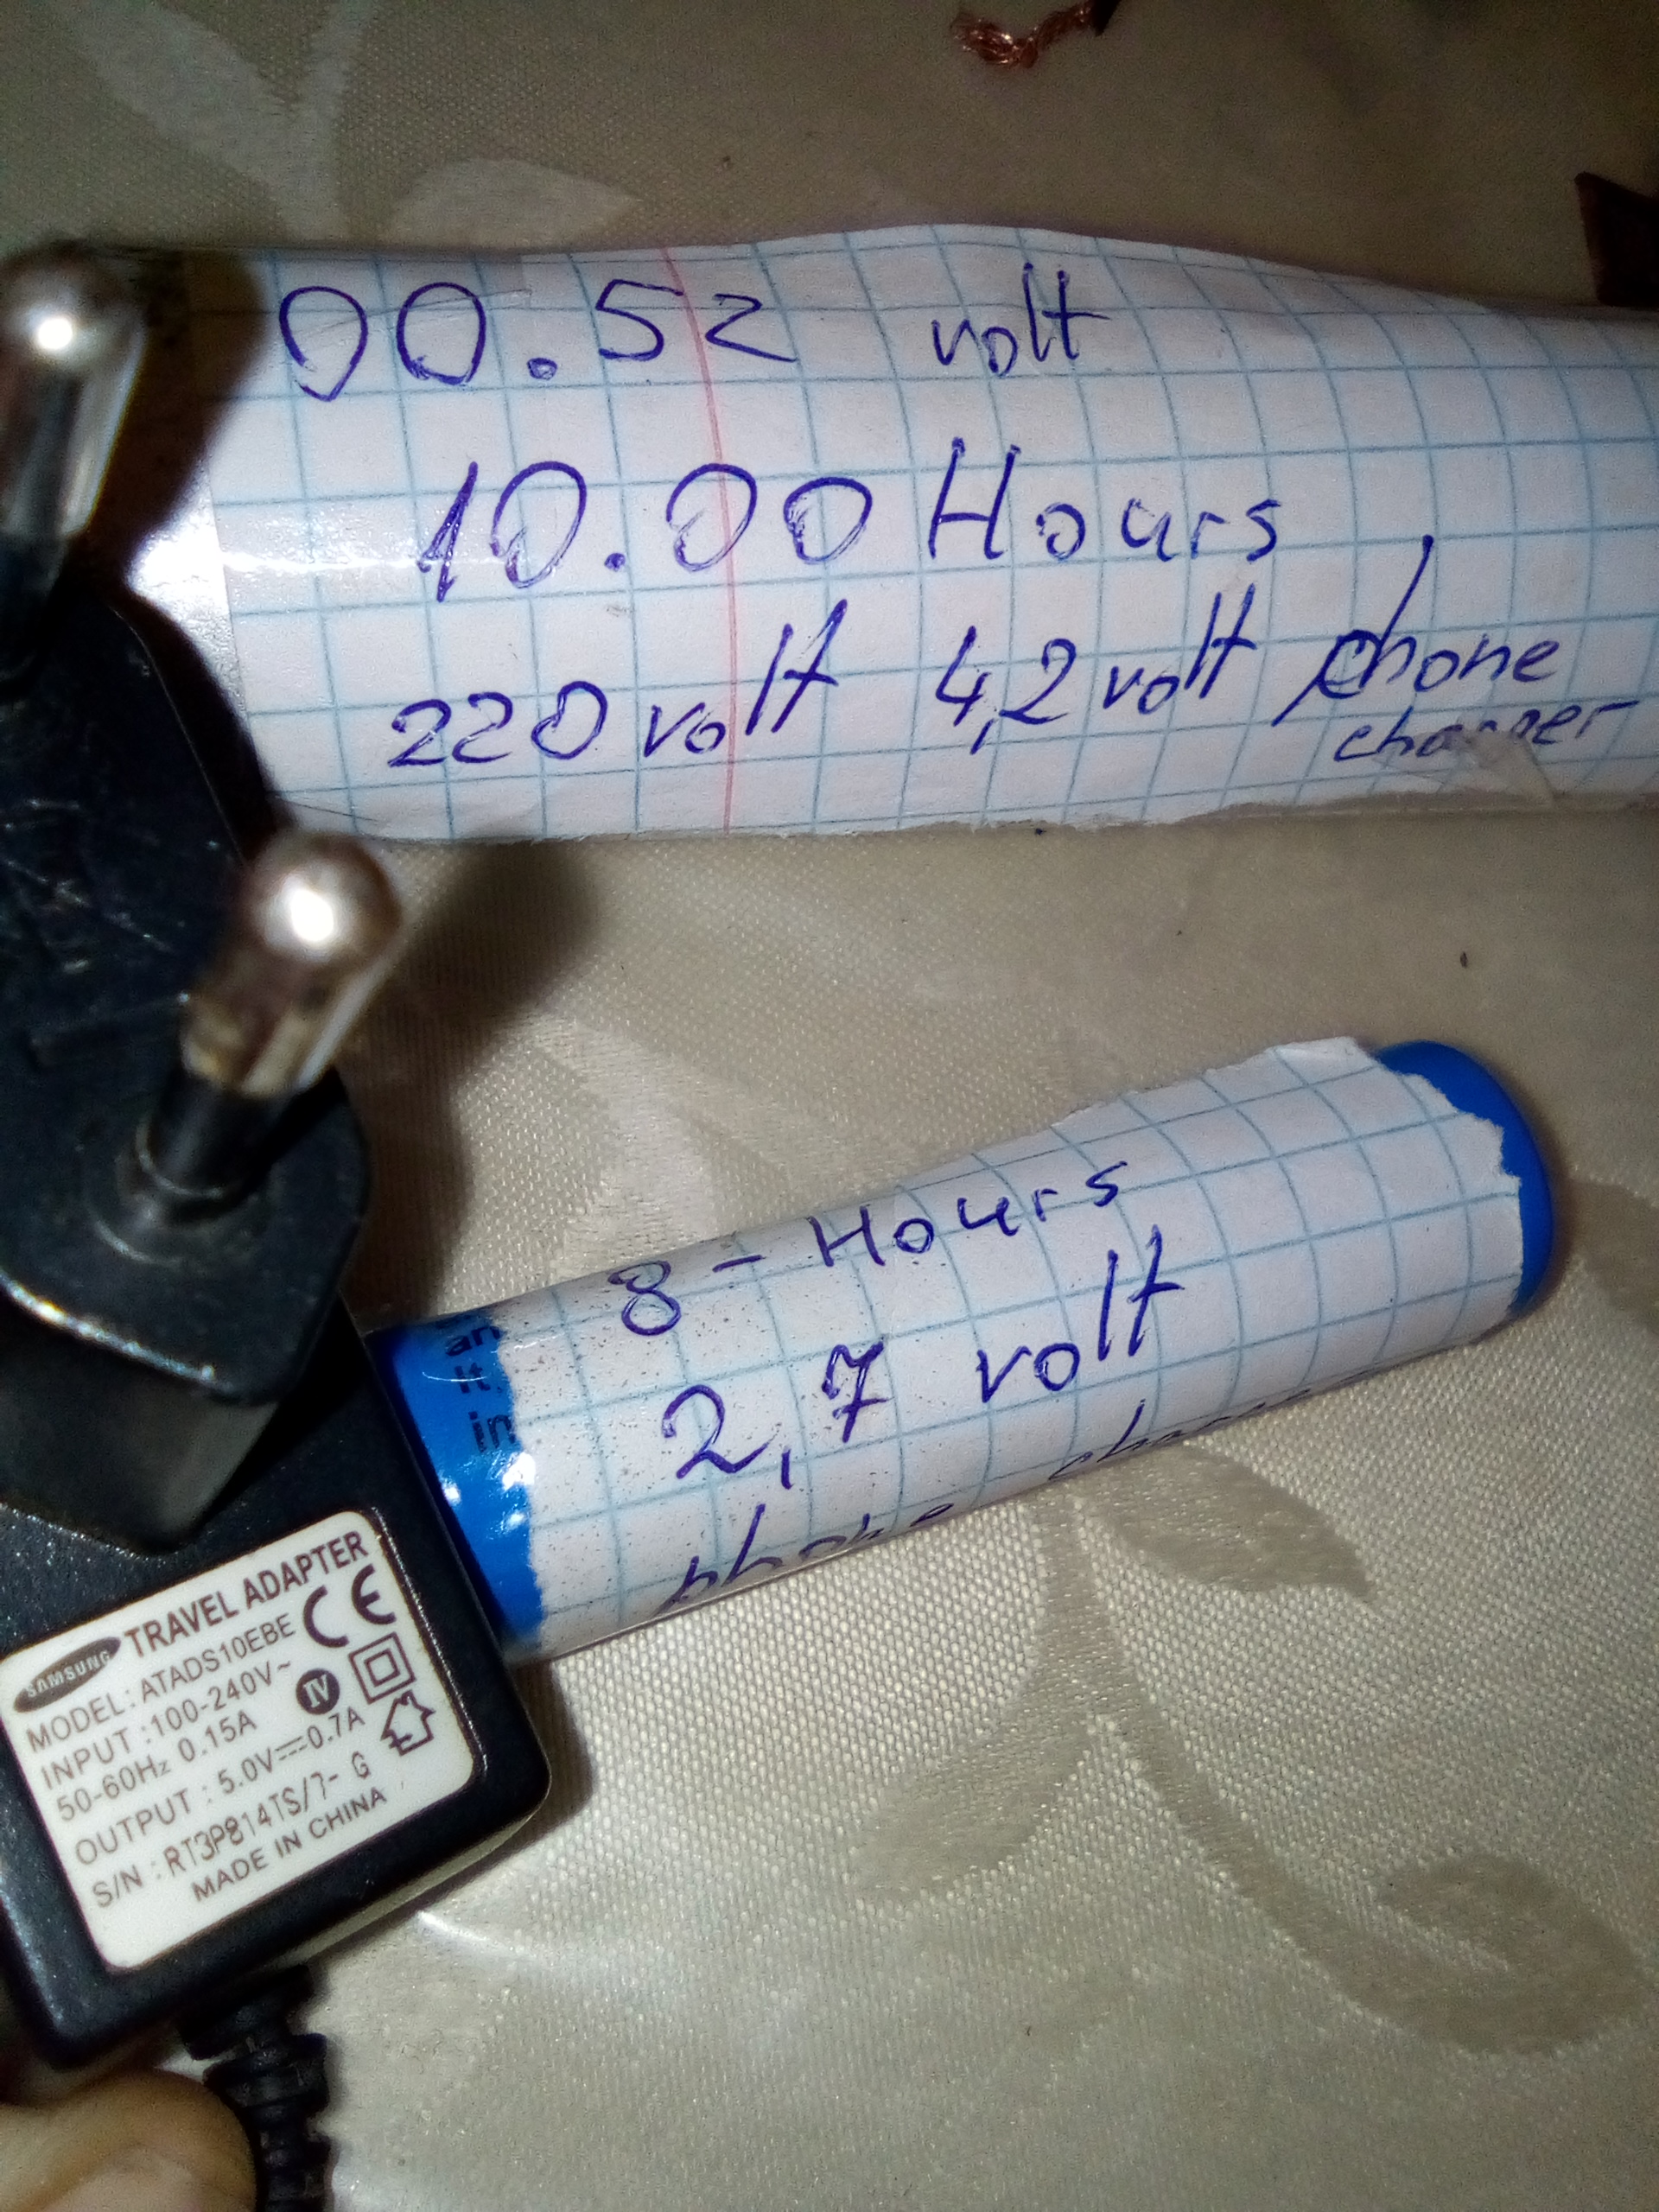 00.52 volt
10.00 Hours
220 volt 4,2 volt phone
charger
8 - Hours
2,7 volt
phone
an
It,
in
SAMSUNG TRAVEL ADAPTER
MODEL : ATADS10EBE
INPUT : 100-240V~
50-60Hz 0.15A
OUTPUT : 5.0V⎓0.7A
S/N : RT3P814TS/7- G
MADE IN CHINA
CE
IV